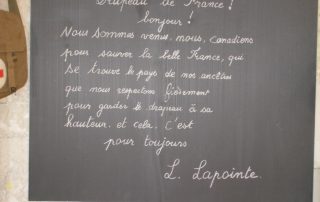 Drapeau de France !
bonjour !
Nous sommes venus, nous, canadiens
pour sauver la belle France, qui
se trouve le pays de nos ancêtres
que nous respectons fièrement
pour garder le drapeau à sa
hauteur. et cela. C'est
pour toujours
L. Lapointe.